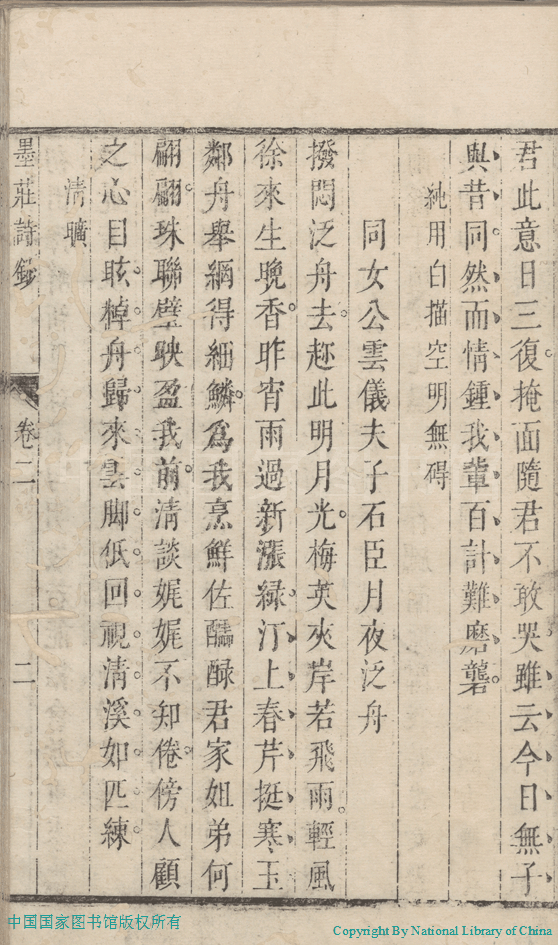 君此意日三復掩面隨君不敢哭雖云今日無子
與昔同然而情鍾我輩百計難磨礱
純用白描空明無碍
同女公雲儀夫子石臣月夜泛舟
撥悶泛舟去趂此明月光梅英夾岸若飛雨輕風
徐來生晚香昨宵雨過新漲綠汀上春芹挺寒玉
鄰舟舉網得細鱗爲我烹鮮佐醽醁君家姐弟何
翩翩珠聯璧暎盈我前清談娓娓不知倦傍人顧
之心目眩棹舟歸來雲脚低回視清溪如匹練
清曠
墨莊詩鈔
卷二
二
中国国家图书馆版权所有
Copyright By National Library of China